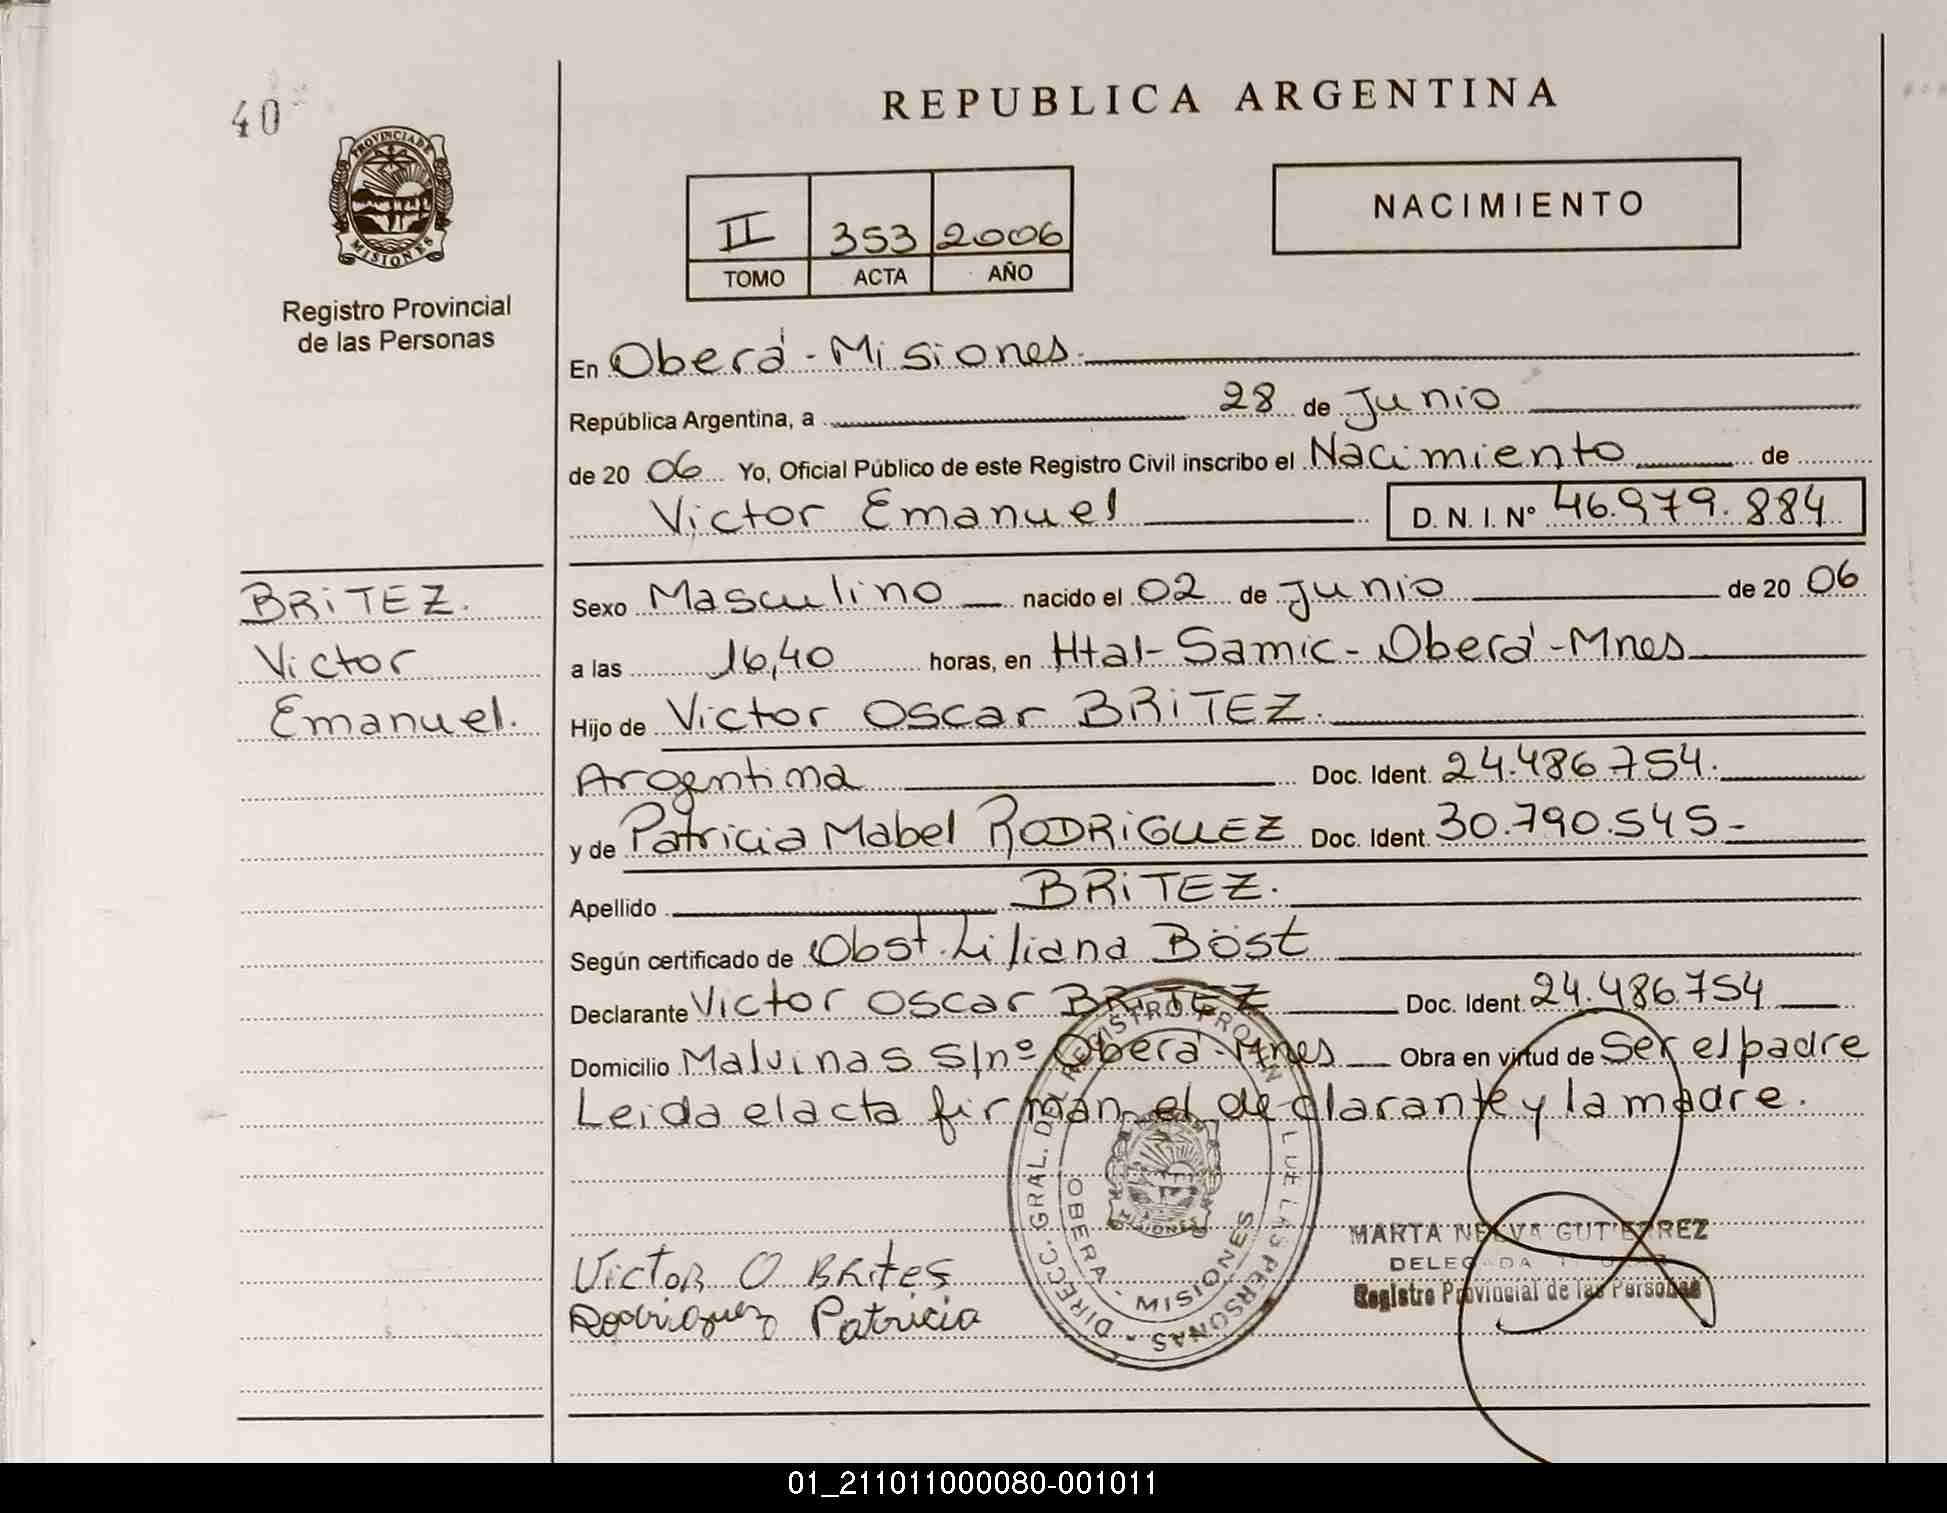 40
PROVINCIA DE
MISIONES
Registro Provincial
de las Personas
REPUBLICA ARGENTINA
II 353 2006
TOMO ACTA AÑO
NACIMIENTO
En Oberá - Misiones.
República Argentina, a 28 de Junio
de 20 06 Yo, Oficial Público de este Registro Civil inscribo el Nacimiento de
Victor Emanuel D. N. I. Nº 46.979.884
BRITEZ.
Victor
Emanuel.
Sexo Masculino nacido el 02 de Junio de 20 06
a las 16,40 horas, en Htal - Samic - Oberá - Mnes
Hijo de Victor Oscar BRITEZ.
Argentina Doc. Ident. 24.486.754.
y de Patricia Mabel RODRIGUEZ Doc. Ident. 30.790.545-
Apellido BRITEZ.
Según certificado de Obst. Liliana Böst
Declarante Victor Oscar BRITEZ Doc. Ident. 24.486.754
Domicilio Malvinas S/nº Oberá - Mnes Obra en virtud de Ser el padre
Leida el acta firman el declarante y la madre.
DIRECC. GRAL. DEL REGISTRO PROVIN LAS PERSONAS
OBERA - MISIONES
MISIONES
Victor O Brites
Rodriguez Patricia
MARTA NELVA GUTIERREZ
DELEGADA
Registro Provincial de las Personas
01_211011000080-001011